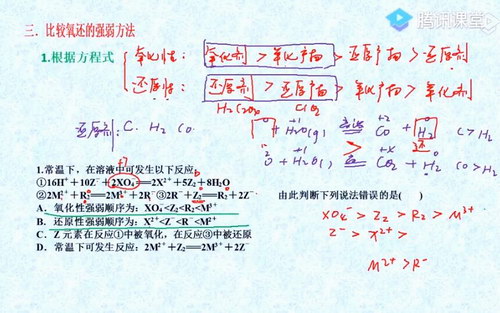 腾讯课堂
三、比较氧还的强弱方法
1.根据方程式
氧化性: 氧化剂 > 氧化产物 > 还原产物 > 还原剂
还原性: 还原剂 > 还原产物 > 氧化产物 > 氧化剂
还原剂: C. H₂ CO
C + H₂O(g) 高温 CO + H₂ C>H₂
CO + H₂O( ) 高温 CO₂ + H₂ CO>H₂
1.常温下，在溶液中可发生以下反应:
①16H⁺+10Z⁻+2XO₄⁻═2X²⁺+5Z₂+8H₂O
②2M²⁺+R₂═2M³⁺+2R⁻③2R⁻+Z₂═R₂+2Z⁻ 由此判断下列说法错误的是( )
A．氧化性强弱顺序为：XO₄⁻<Z₂<R₂<M³⁺
B．还原性强弱顺序为：X²⁺<Z⁻<R⁻<M²⁺
C．Z 元素在反应①中被氧化，在反应③中被还原
D．常温下可发生反应：2M²⁺+Z₂═2M³⁺+2Z⁻
XO₄⁻ > Z₂ > R₂ > M³⁺
Z⁻ > X²⁺ >
M²⁺ > R⁻